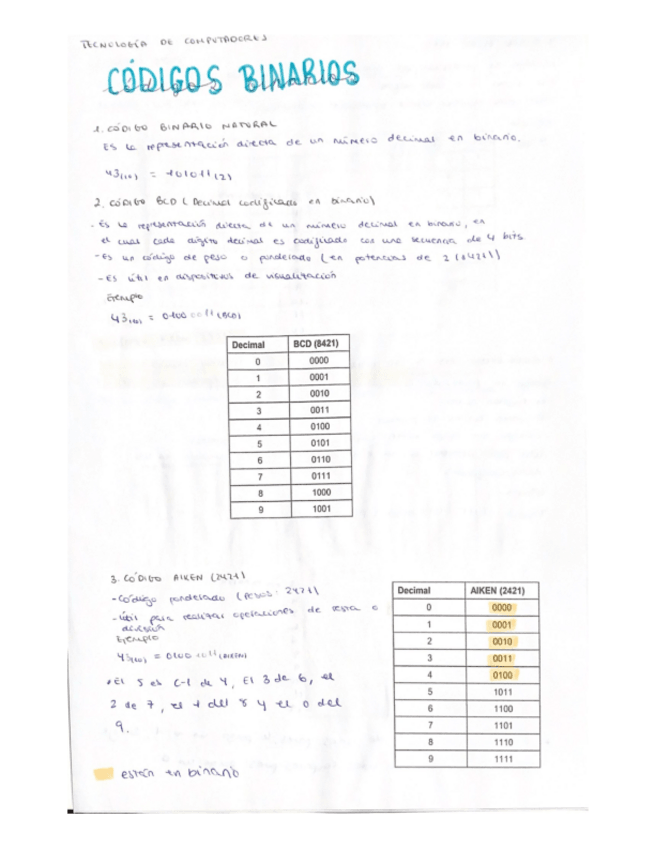 TECNOLOGÍA DE COMPUTADORES
CÓDIGOS BINARIOS
1. CÓDIGO BINARIO NATURAL
Es la representación directa de un número decimal en binario.
43(10) = 101011(2)
2. CÓDIGO BCD (Decimal codificado en binario)
- Es la representación directa de un número decimal en binario, en
el cual cada dígito decimal es codificado con una secuencia de 4 bits.
- Es un código de peso o ponderado (en potencias de 2 (8421))
- Es útil en dispositivos de visualización
Ejemplo
43(10) = 0100 0011 (BCD)
Decimal BCD (8421)
0 0000
1 0001
2 0010
3 0011
4 0100
5 0101
6 0110
7 0111
8 1000
9 1001
3. CÓDIGO AIKEN (2421)
- Código ponderado (pesos: 2421)
- Útil para realizar operaciones de resta o
división
Ejemplo
43(10) = 0100 0011 (AIKEN)
• El 5 es C-1 de 4, El 3 de 6, el
2 de 7, el 1 del 8 y el 0 del
9.
están en binario
Decimal AIKEN (2421)
0 0000
1 0001
2 0010
3 0011
4 0100
5 1011
6 1100
7 1101
8 1110
9 1111